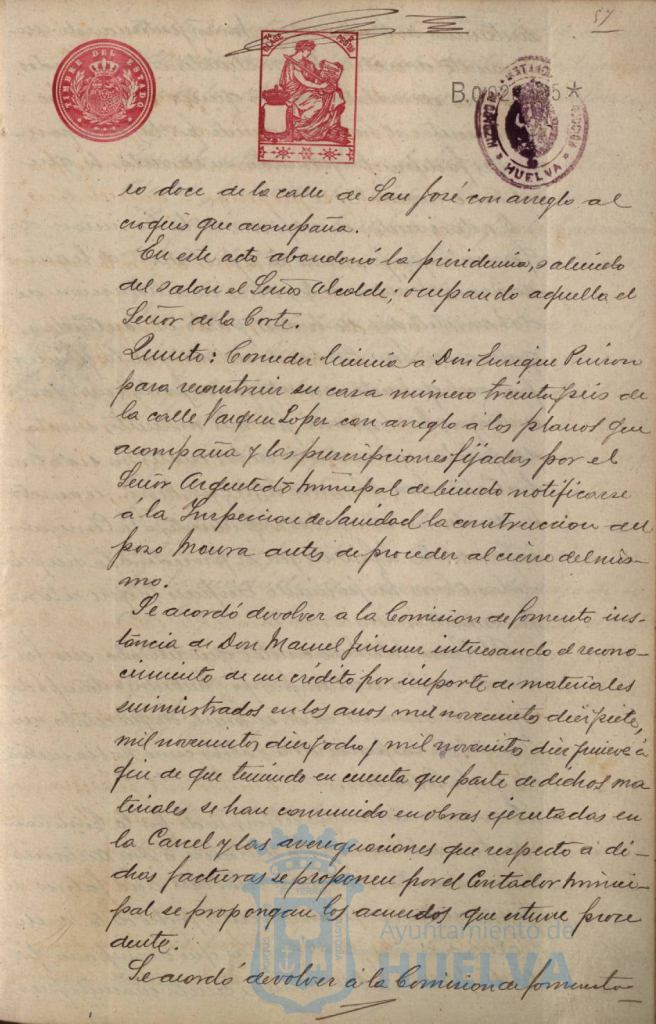 57
TIMBRE DEL ESTADO
CLASE
HUELVA
ro doce de la calle de San José con arreglo al
croquis que acompaña.
En este acto abandonó la presidencia, saliendo
del salon el Señor Alcalde; ocupando aquella el
Señor de la Corte.
Quinto: Conceder licencia a Don Enrique
para reconstruir su casa número treinta y seis de
la calle Vazquez Lopez con arreglo á los planos que
acompaña y las prescripciones fijadas por el
Señor Arquitecto Municipal debiendo notificarse
á la Inspeccion de Sanidad la construccion del
pozo Moura antes de proceder al cierre del mis-
mo.
Se acordó devolver a la Comision de fomento ins-
tancia de Don Manuel Jimenez interesando el recono-
cimiento de un crédito por importe de materiales
suministrados en los años mil novecientos diez y siete,
mil novecientos diez y ocho y mil novecientos diez y nueve á
fin de que teniendo en cuenta que parte de dichos ma
teriales se han consumido en obras ejecutadas en
la Carcel y las averiguaciones que respecto á di-
chas facturas se proponen por el Contador Munici-
pal se propongan los acuerdos que estime proce
dente.
Se acordó devolver á la Comision de fomento
Ayuntamiento de
HUELVA